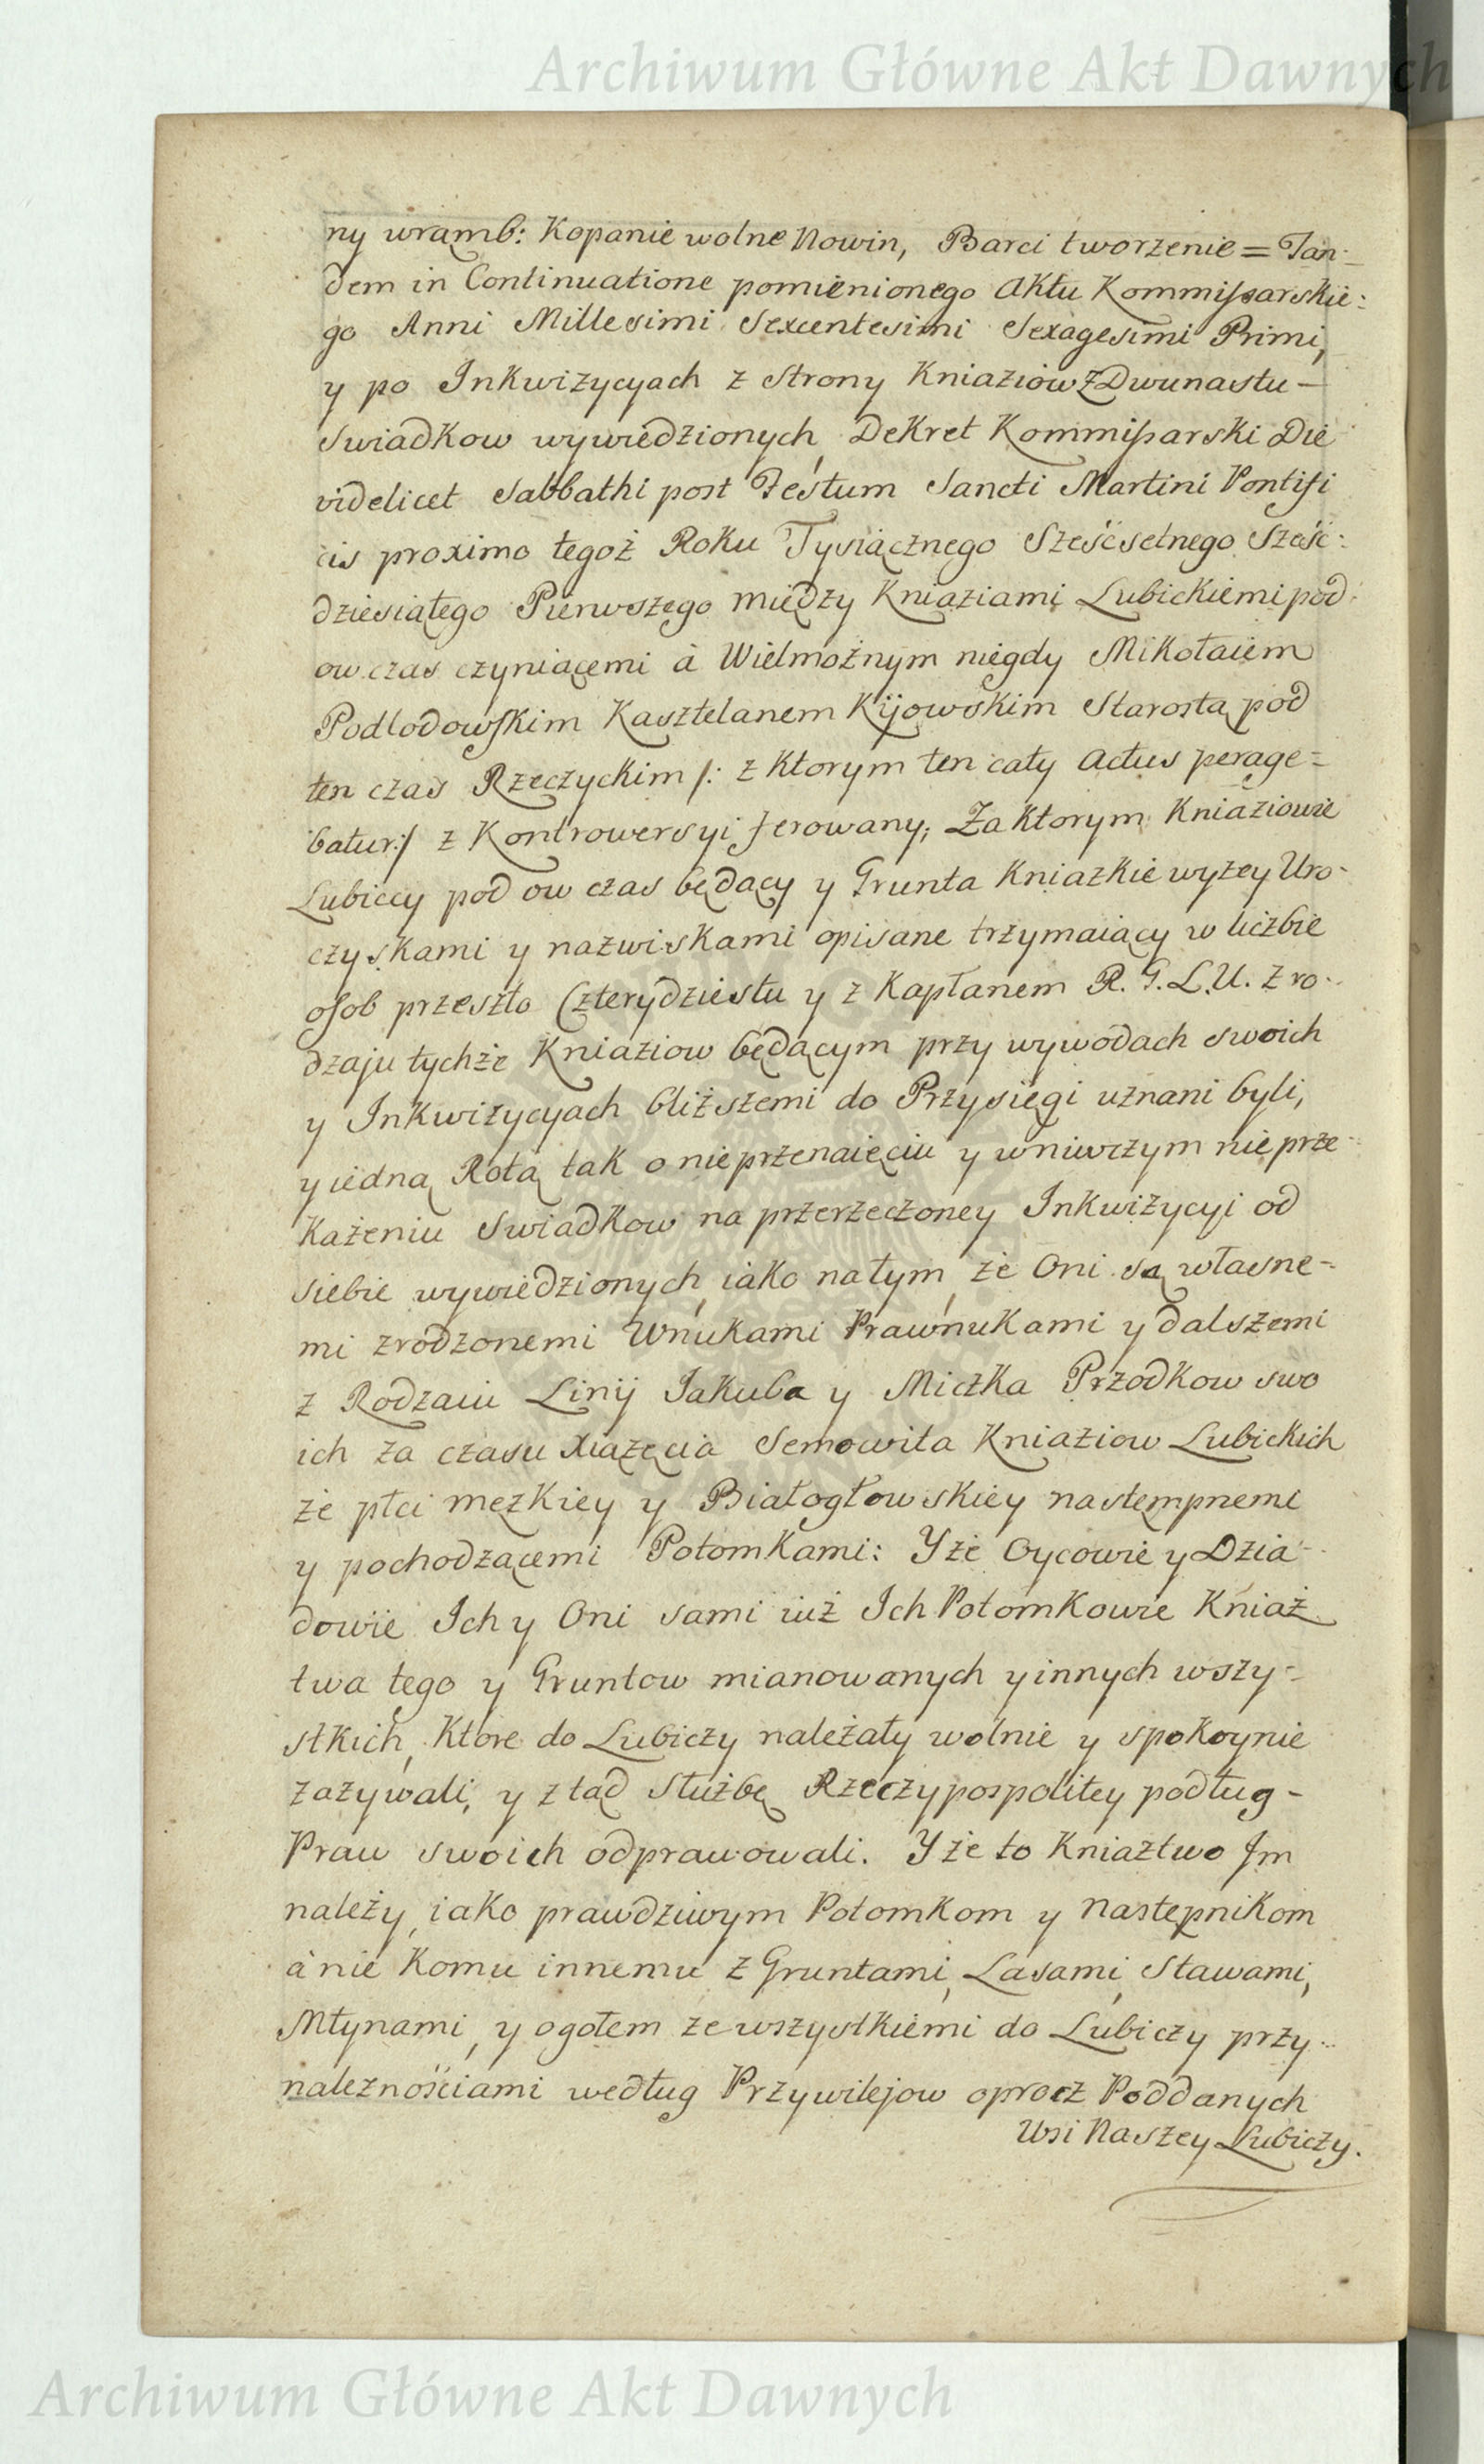 Archiwum Główne Akt Dawnych
ny wrąmb: Kopanie wolne Nowin, Barci tworzenie = Tan-
dem in Continuatione pomienionego Aktu Kommissarskie:
go Anni Millesimi Sexcentesimi Sexagesimi Primi,
y po Inkwizycyach z Strony Kniaziow z Dwunastu –
Swiadkow wywiedzionych, Dekret Kommissarski Die
videlicet Sabbathi post Festum Sancti Martini Pontifi
cis proximo tegoż Roku Tysiącznego Sześćsetnego Sześć:
dziesiątego Pierwszego między Kniaziami Lubickiemi pod:
ow czas czyniącemi à Wielmożnym niegdy Mikołaiem
Podlodowskim Kasztelanem Kijowskim Starostą pod
ten czas Rzeczyckim /: z ktorym ten cały Actus perage=
batur:/ z Kontrowersyi ferowany; Za ktorym Kniaziowie
Lubiccy pod ow czas będący y Grunta Kniazkie wyżey Uro-
czyskami y nazwiskami opisane trzymaiący w liczbie
osob przeszło Czterydziestu y z Kapłanem R. G. L. U. z ro-
dzaju tychże Kniaziow będącym przy wywodach swoich
y Inkwizycyach bliższemi do Przysięgi uznani byli,
y iedną Rotą tak o nieprzenaięciu y wniwczym nieprze-
każeniu Swiadkow na przerzeczoney Inkwizycyi od
siebie wywiedzionych, iako na tym, że Oni są własne-
mi zrodzonemi Wnukami Prawnukami y dalszemi
z Rodzaiu Linij Jakuba y Miczka Przodkow swo
ich za czasu Xiążęcia Semowita Kniaziow Lubickich
że płci męzkiey y Białogłowskiey nastempnemi
y pochodzącemi Potomkami: Y że Oycowie y Dzia-
dowie Ich y Oni sami iuż Ich Potomkowie Kniaż
twa tego y Gruntow mianowanych y innych wszy-
stkich, ktore do Lubiczy należały wolnie y spokoynie
zażywali, y ztąd Służbę Rzeczypospolitey podług –
Praw swoich odprawowali. Y że to Kniaztwo Im
należy, iako prawdziwym Potomkom y Następnikom
à nie komu innemu z Gruntami, Lasami, Stawami,
Młynami, y ogołem ze wszystkiemi do Lubiczy przy-
należnościami według Przywilejow oprocz Poddanych
Wsi Naszey Lubiczy.
Archiwum Główne Akt Dawnych